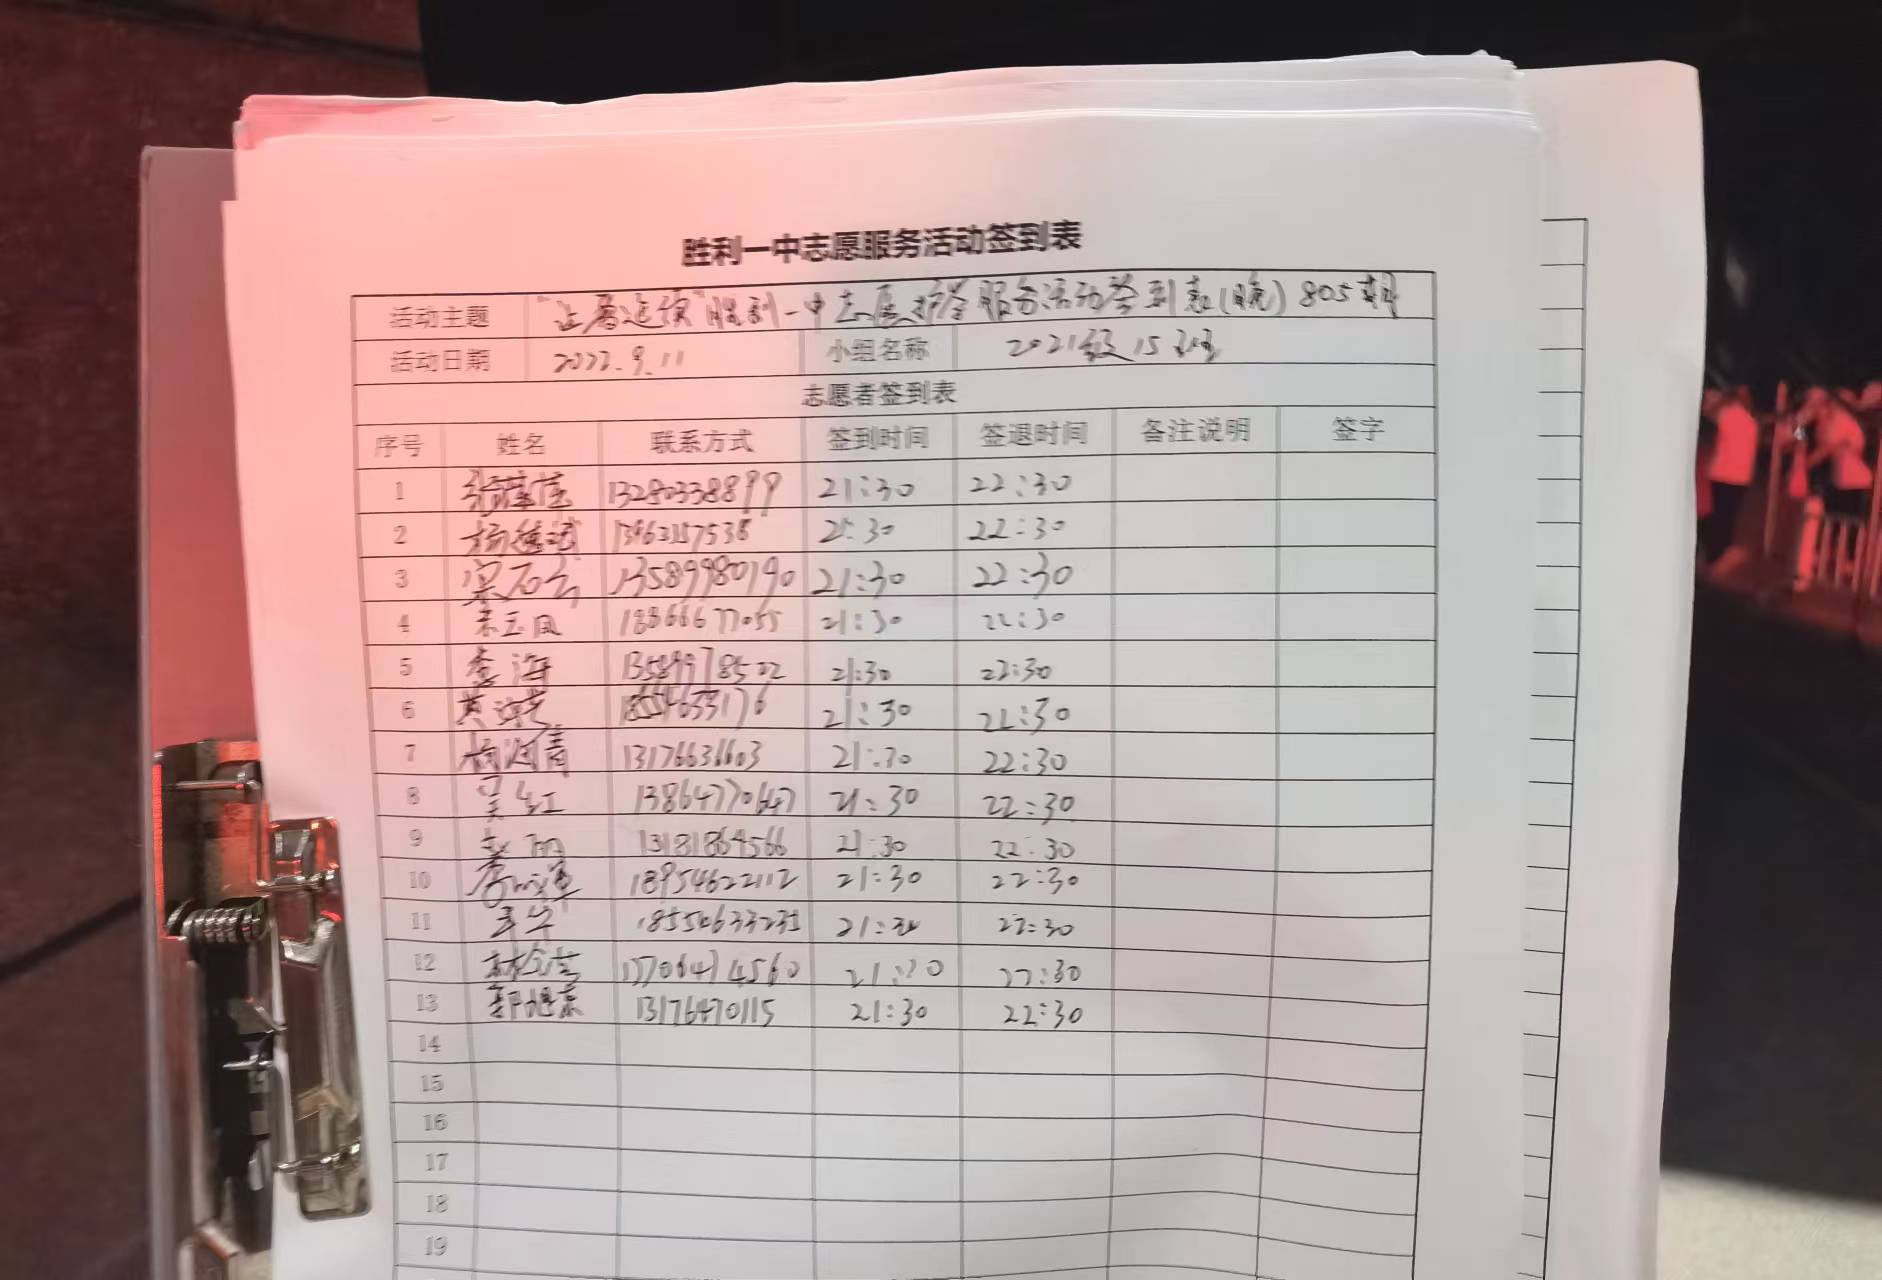 胜利一中志愿服务活动签到表
活动主题 胜利一中志愿护学服务活动签到表(晚) 805
活动日期 2022.9.11 小组名称 2021级15班
志愿者签到表
序号 姓名 联系方式 签到时间 签退时间 备注说明 签字
1 13280338899 21:30 22:30
2 21:30 22:30
3 13589980190 21:30 22:30
4 18866677055 21:30 22:30
5 李海 13589978502 21:30 22:30
6 18554633176 21:30 22:30
7 杨河青 13176631603 21:30 22:30
8 吴红 13864770647 21:30 22:30
9 赵丽 13181864566 21:30 22:30
10 18954622112 21:30 22:30
11 18554633235 21:30 22:30
12 22:30
13 郭旭东 13176470115 21:30 22:30
14
15
16
17
18
19